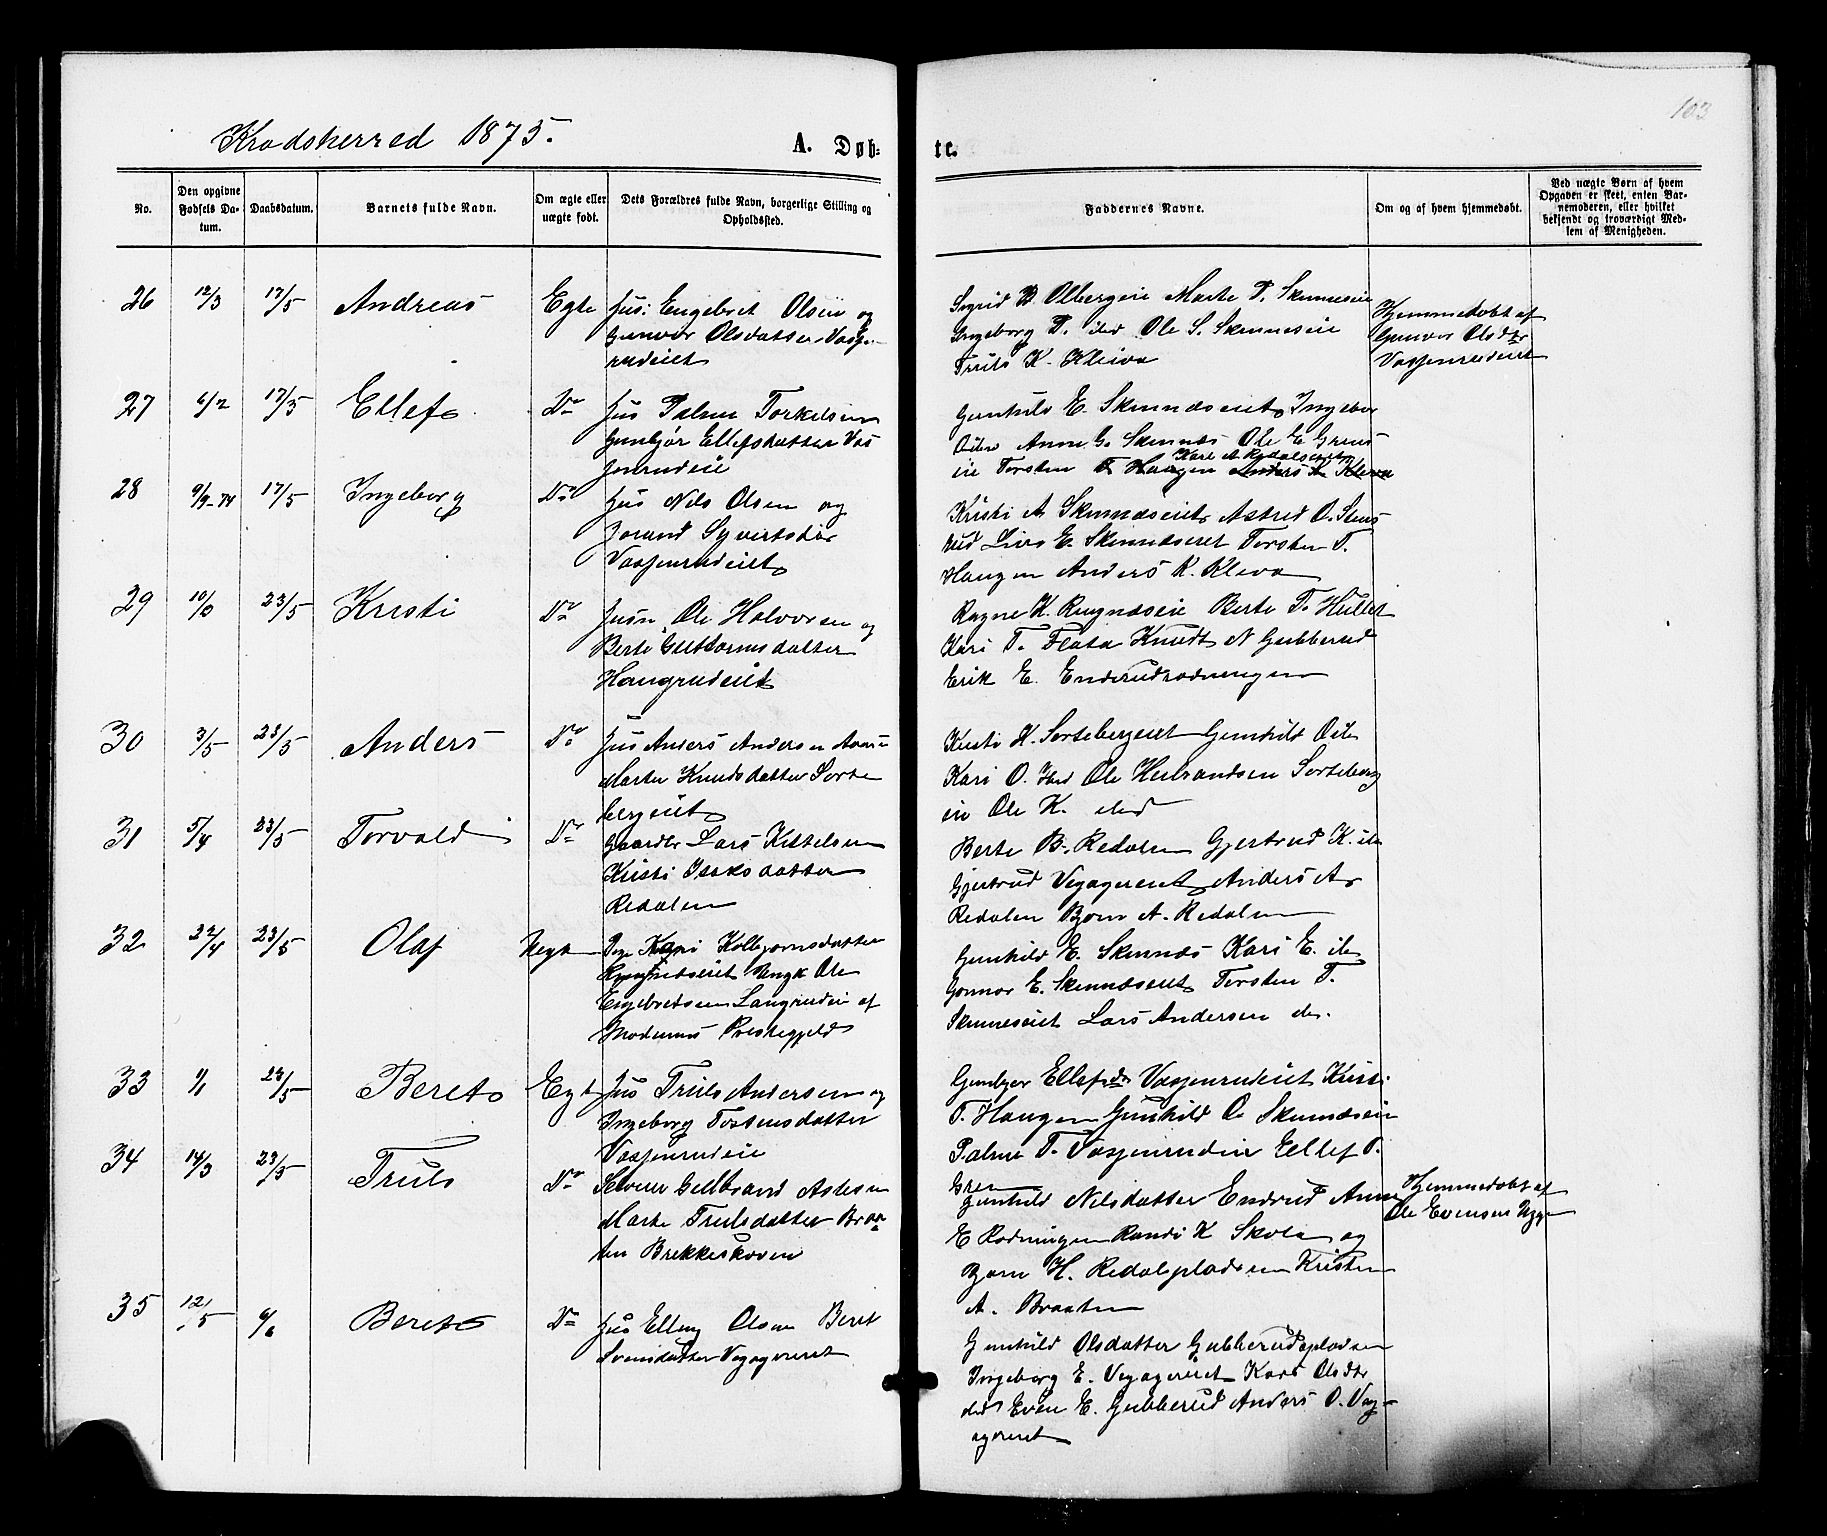 103
Krodsherred 1875.
A. Døb-
te.
No.
Den opgivne
Fødsels Da-
tum.
Daabsdatum.
Barnets fulde Navn.
Om ægte eller
uægte født.
Dets Forældres fulde Navn, borgerlige Stilling og
Opholdssted.
Faddernes Navne.
Om og af hvem hjemmedøbt.
Ved uægte Børn af hvem
Opgaven er skeet, enten Bar-
nemoderen, eller hvilket
bekjendt og troværdigt Med-
lem af Menigheden.
26 12/3 17/5 Andreas Egte Hus: Engebret Olsen og
Gunvor Olsdatter Vasjen-
rudeiet
Sigrid B Olbergeie Marte T. Skinneseie
Ingeborg T. ibid Ole S. Skinneseie
Truls K. Kleiva
Hjemmedøbt af
Gunvor Olsdtr
Vasjenrudeiet
27 6/2 17/5 Ellef Do Hus Palme Torkelsen
Gunbjør Ellefsdatter Vas
jenrudeie
Gunhild E. Skinnæseiet Ingebor
Anne G. Skinnæs Ole E Gren
eie Torsten T Haugen Anders K Kleva
Karl A Redalseiet
28 9/9-74 17/5 Ingeborg Do Hus Nils Olsen og
Jorand Syvertsdtr
Vasjenrudeiet
Kristi A Skinnæseiet Astrid O. Stens
rud Livo E. Skinnæseiet Torsten T.
Haugen Anders K. Kleva
29 23/5 Kristi Do Husm Ole Halvorsen og
Berte Guttormsdatter
Haugrudeiet
Ragne K. Ringnæseie Berte T. Hullet
Kari T. Flata Knudt N Gubberud
Erik E. Enderudrødningen
30 3/5 23/5 Anders Do Hus Anders Andersen
Marte Knudsdatter Sorte
bergeiet
Kristi H. Sortebergeiet Gunhild
Kari O. Ibid Ole Helbrandsen Sorteberg
eie Ole K. ibid
31 5/4 23/5 Torvald Do Gaardbr Lars Kittelsen
Kristi Isaksdatter
Redalen
Berte B. Redalen Gjertrud K. ibi
Gjertrud Vegagereiet Anders A.
Redalen Bjorn A. Redalen
32 22/4 23/5 Olaf Uegte Pige Kari Kolbjornsdatter
Ungk Ole
Engebretsen Langrudeie af
Modums Prestegjeld
Gunhild E. Skinnæs Kari E. ib
Gunnor E. Skinnæseiet Torsten T.
Skinneseiet Lars Andersen do.
33 23/5 Beret Egt Hus Truls Andersen og
Ingeborg Tostensdatter
Vasjenrudeie
Gunbjor Ellefsdtr Vasjenrudeiet Kristi
T. Haugen Gunhild O. Skinnæseie
Palme T. Vasjenrudeie Ellef T.
Gren
34 14/3 23/5 Truls Do Selveier Gulbrand Aslesen
Marte Trulsdatter Braa-
ten Brekkeskoven
Gunhild Nilsdatter Endrud Anne
E Rodningen Randi K Skola og
Bjorn H. Redalspladsen Kristen
A. Braaten
Hjemmedøbt af
Ole Evensen Ugge
35 12/5 6/6 Beret Do Hus Elling Olsen Beret
Svensdatter Vegagereiet
Gunhild Olsdatter Gubberudspladsen
Ingeborg E. Vegagereiet Kari Olsdtr
ibid Even E. Gubberud Anders O. Veg-
agereiet